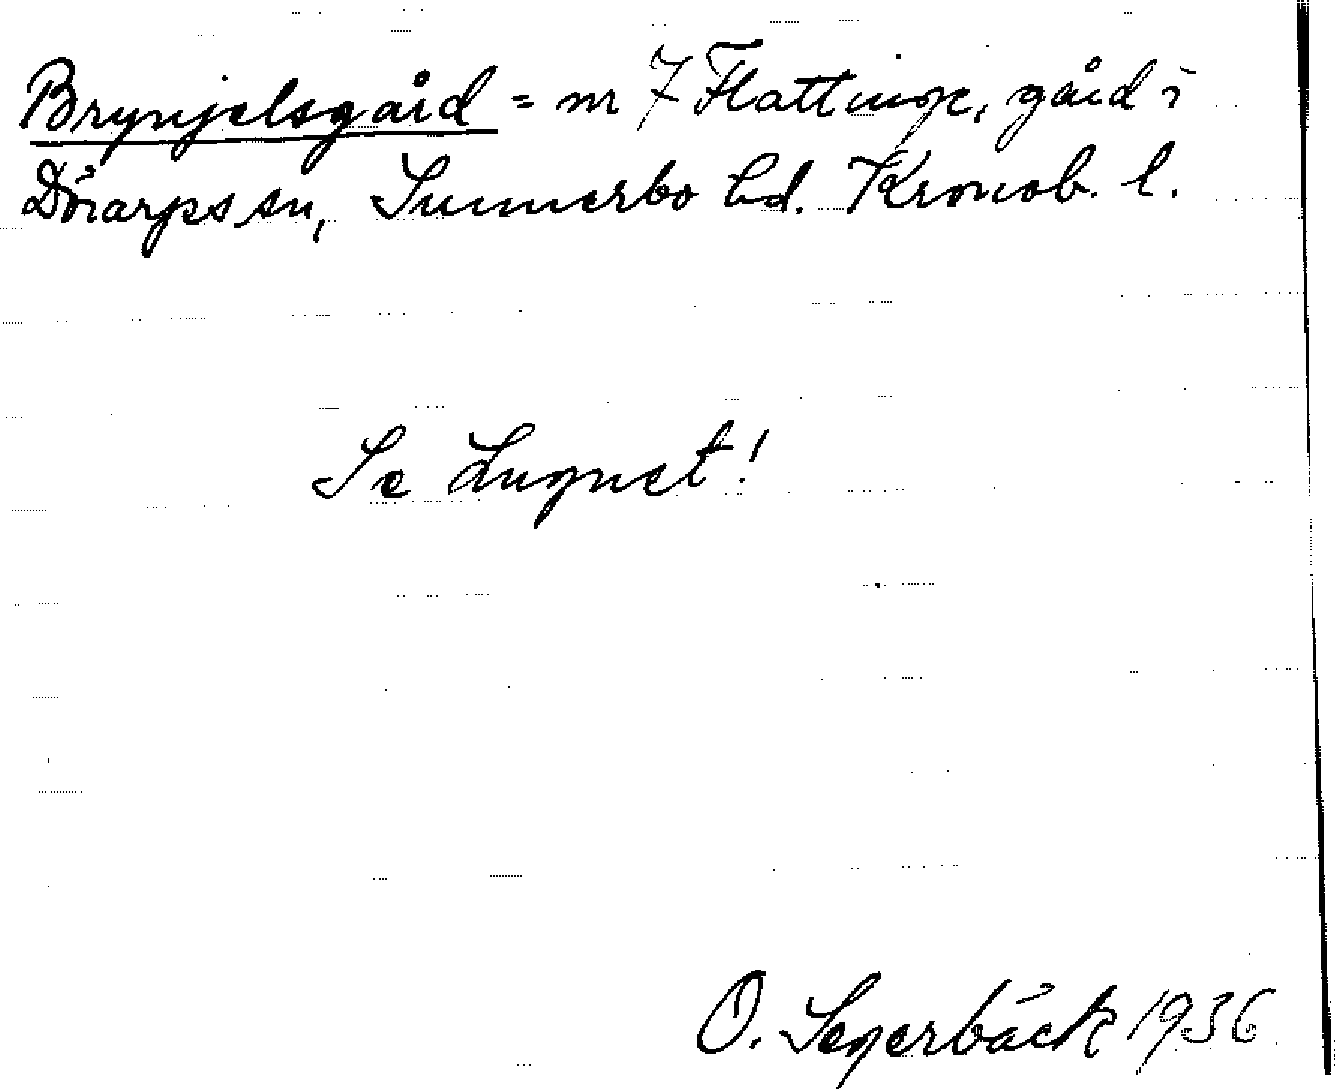 Brynjelsgård = nr 7 Flattinge, gård i
Dörarps sn, Sunnerbo hd. Kronob. l.
Se Lugnet!
O. Segerbäck 1936